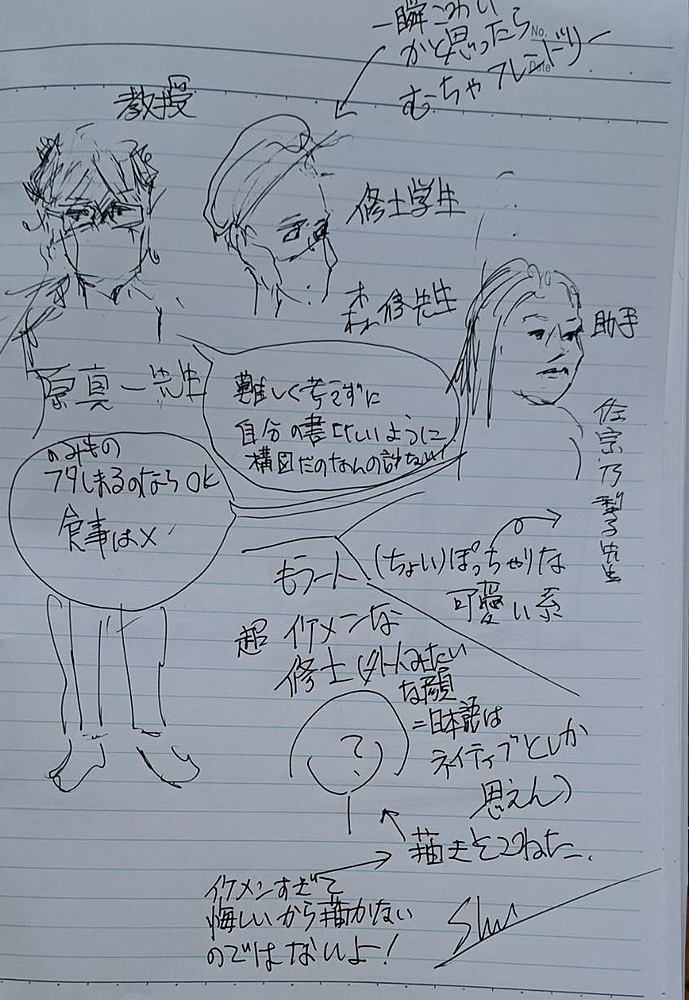 一瞬こわい
かと思ったら
No.
Date
むっちゃフレンドリー
教授
修士学生
森修先生
助手
佐宗乃梨子先生
原真一先生
難しく考えずに
自分の書きたいように
構図だのなんの
のみもの
フタしまるのならOK
食事は×
もう一人
(ちょい)ぽっちゃりな
可愛い系
超イケメンな
修士(外人みたい
な顔
=日本語は
ネイティブとしか
思えん)
?
描きそこねた。
イケメンすぎて
悔しいから描かない
のではないよ!